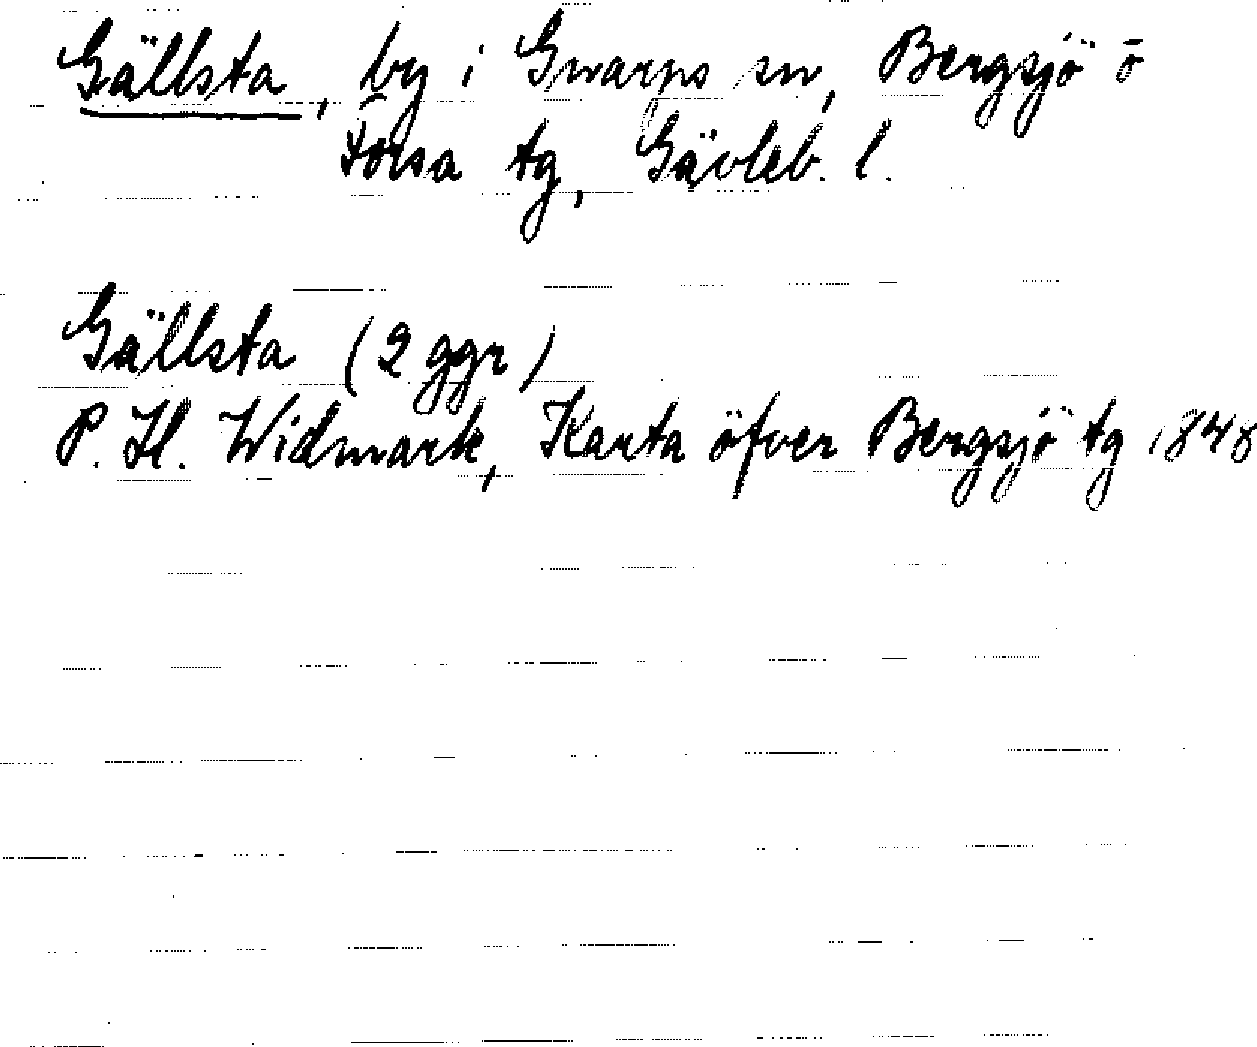 Gällsta, by i Gnarps sn, Bergsjö o
Forsa tg, Gävleb. l.
Gällsta (2 ggr)
P. H. Widmark, Karta öfver Bergsjö tg 1848